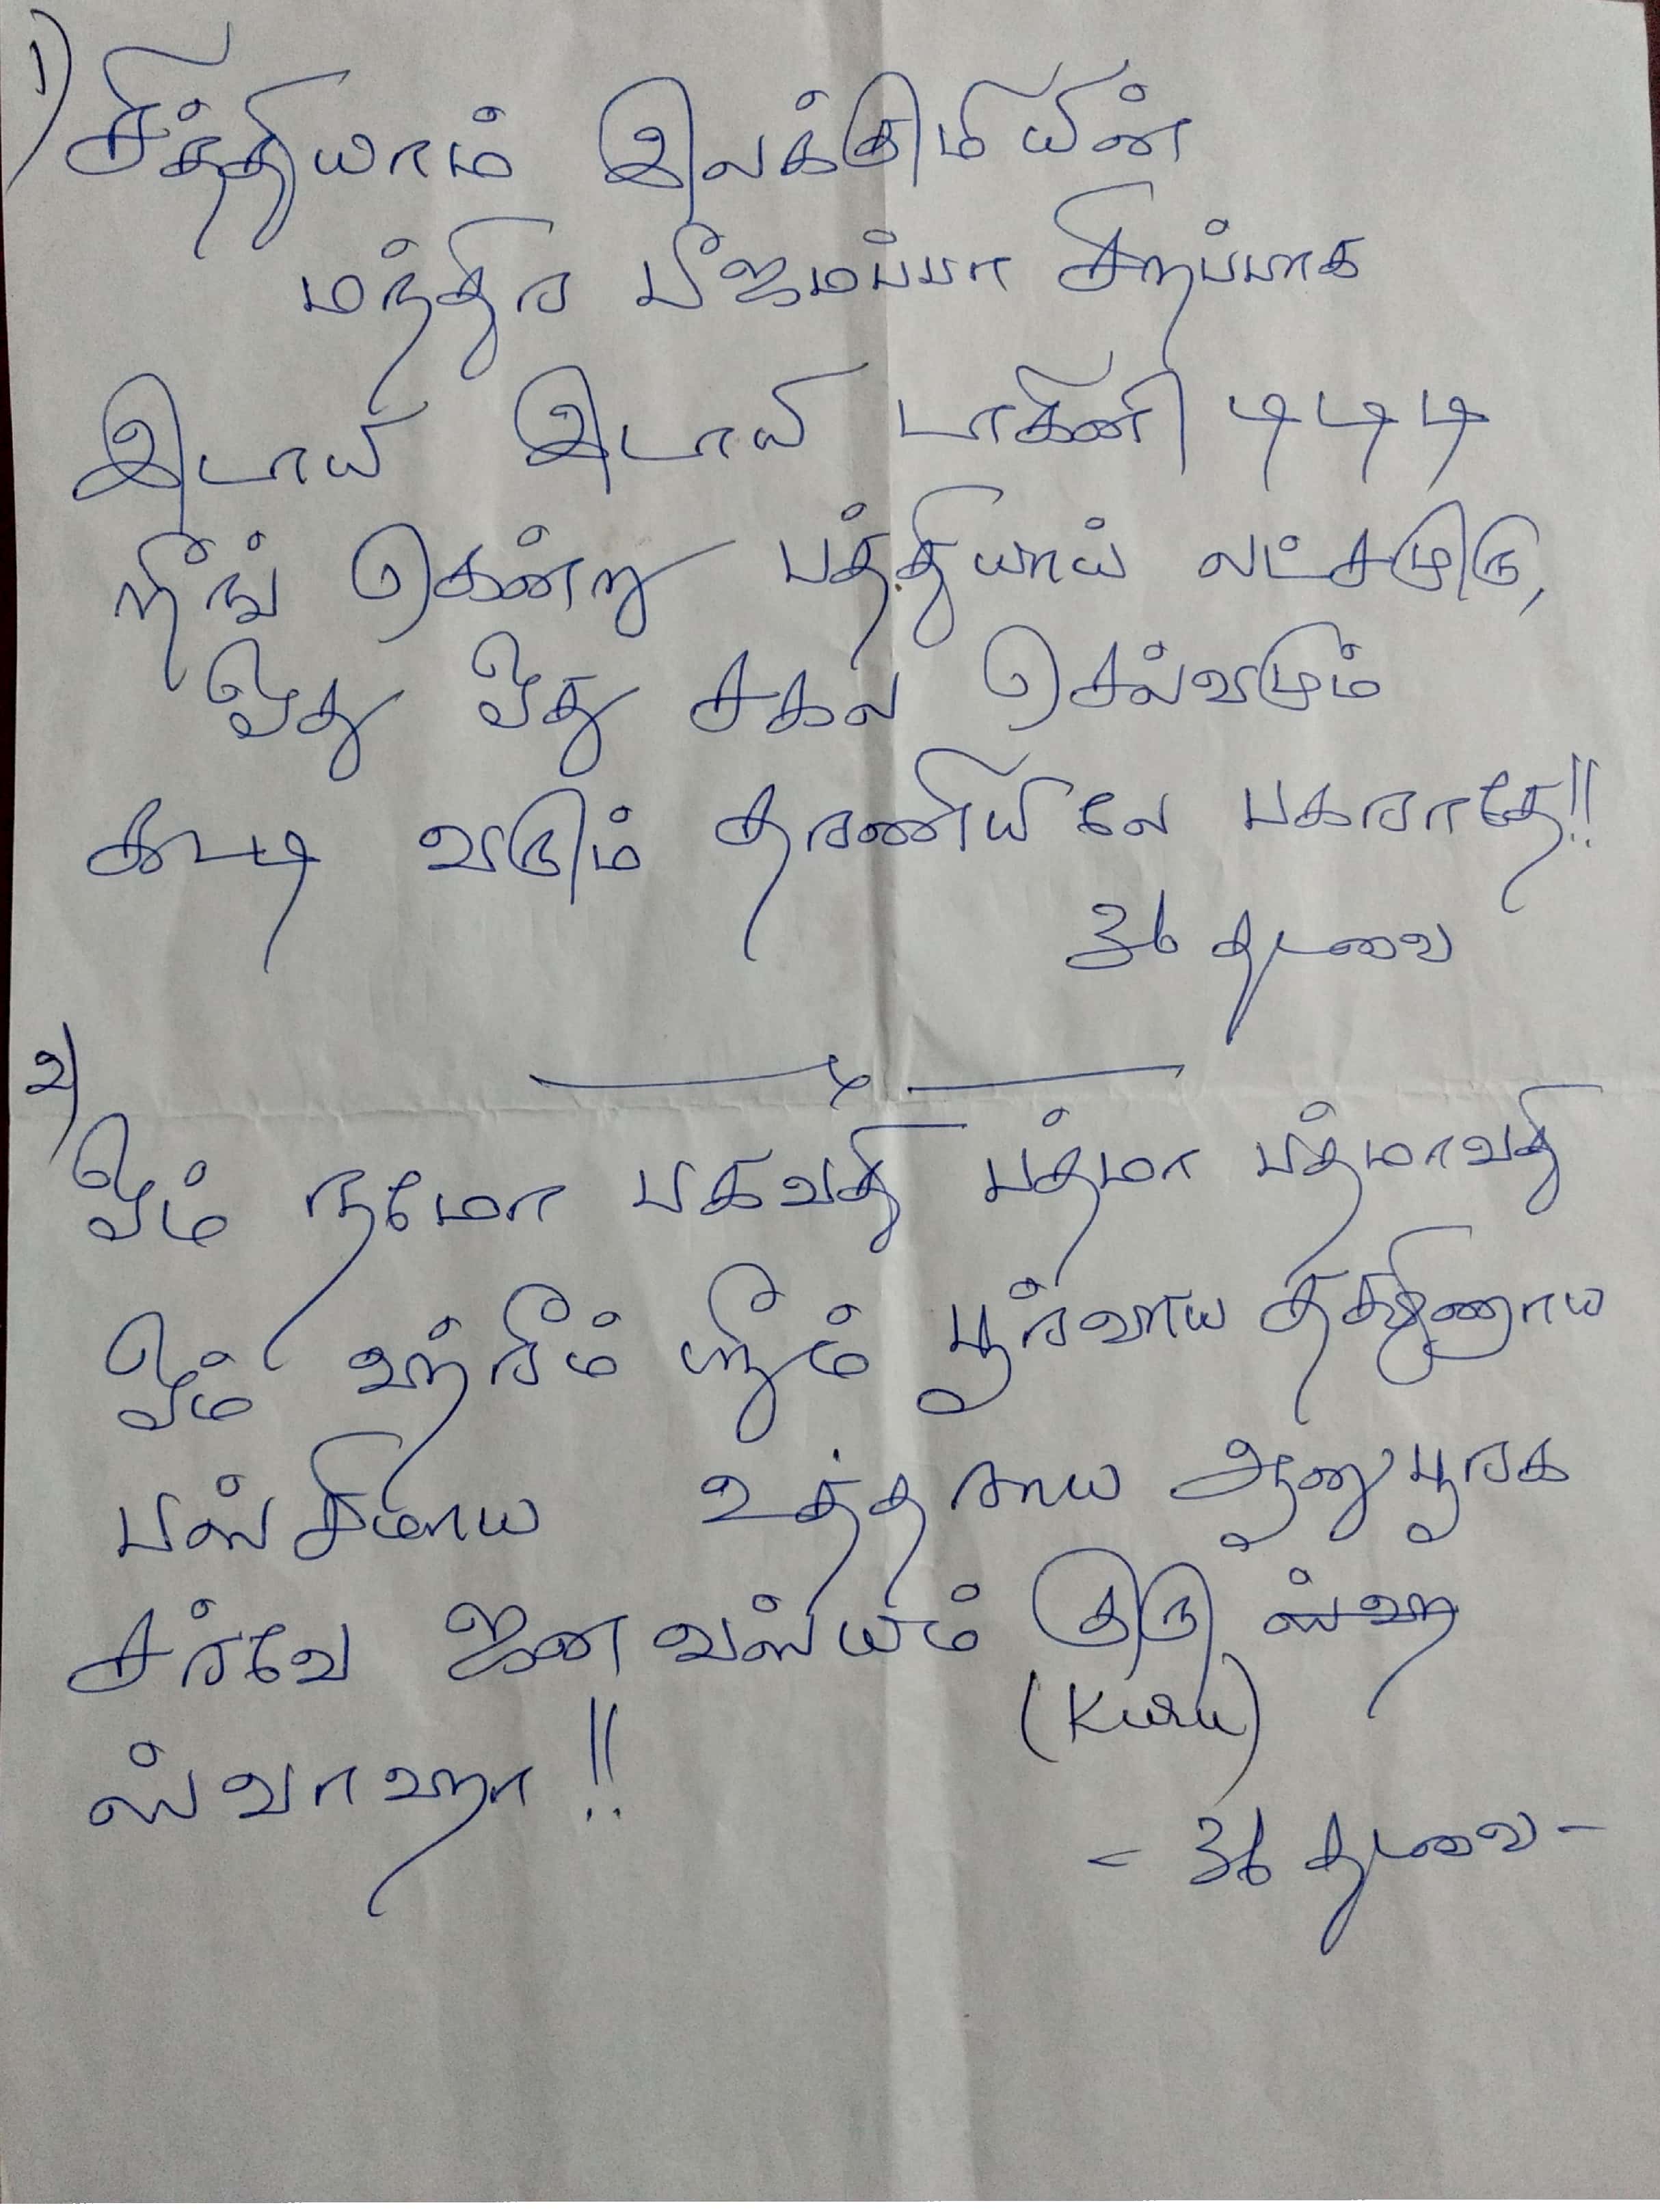 1) சித்தியாம் இலக்குமியின்
மந்திர பீஜமப்பா சிறப்பாக
இடாயி இடாயி டாகினி டி டி டி
றீங் கென்று பத்தியாய் லட்சமுரு,
ஓது ஓது சகல செல்வமும்
கூடி வரும் தரணியிலே பகராதே!!
36 தடவை
2)
ஓம் நமோ பகவதி பத்மா பத்மாவதி
ஓம் ஹ்ரீம் ஸ்ரீம் பூர்வாய தக்ஷிணாய
பஸ்சிமாய உத்தராய ஆனுபூரக
சர்வே ஜன வஸ்யம் குரு ஸ்ஹ
(Kuru)
ஸ்வாஹா!!
- 36 தடவை -